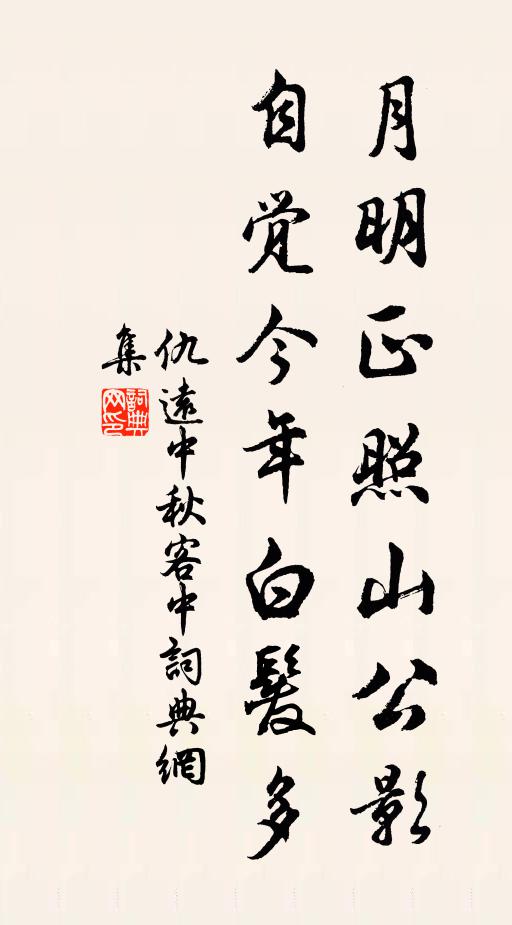 月明正照山公影
自觉今年白髮多
仇遠中秋客中詞典網
集
詞典网印